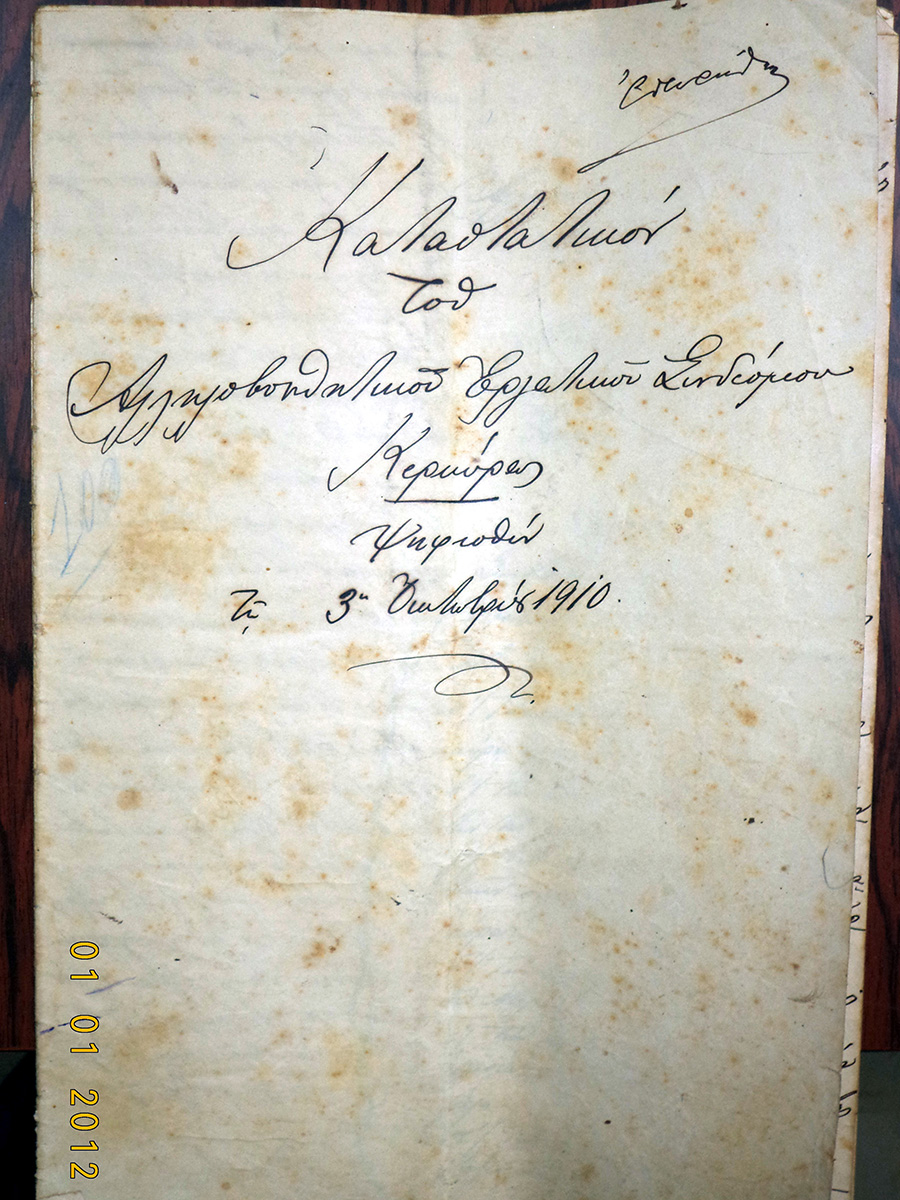 Ἐνεκρίθη
Καταστατικόν
τοῦ
Ἀλληλοβοηθητικοῦ Ἐργατικοῦ Συνδέσμου
Κερκύρας
Ψηφισθέν
τῇ 3ῃ Ὀκτωβρίου 1910.
100
01 01 2012